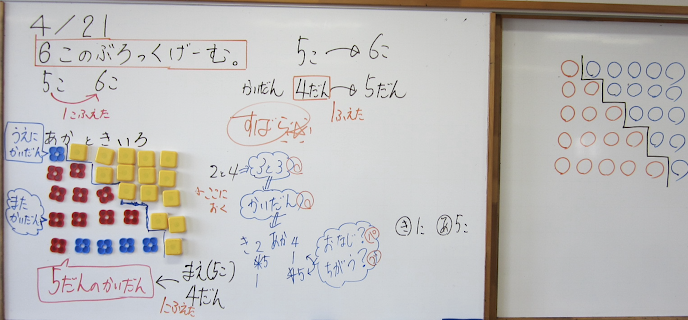 4/21
6このぶろっくげーむ。
5こ 6こ
1こふえた
あかときいろ
うえに
かいだん
また
かいだん
5だんのかいだん
まえ(5こ)
4だん
1こふえた
5こ→6こ
かいだん 4だん→5だん
1ふえた
すばらしい
2と4→3と3
ここに
おく
かいだん
き あか
2 4
5 5
1 1
おなじ?
ちがう?
き1こ あ5こ